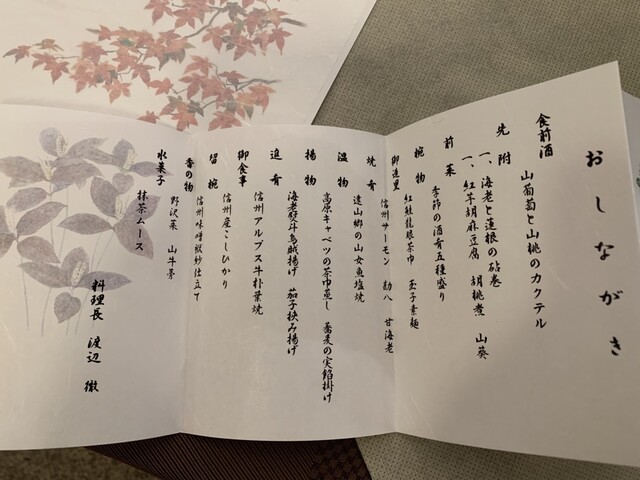 おしながき
食前酒
山葡萄と山桃のカクテル
先附
一、海老と蓮根の砧巻
一、紅芋胡麻豆腐 胡桃煮 山葵
前菜
季節の酒肴五種盛り
椀物
紅鮭龍眼茶巾 玉子素麺
御造里
信州サーモン 勘八 甘海老
焼肴
遠山郷の山女魚塩焼
温物
高原キャベツの茶巾蒸し 蕎麦の実餡掛け
揚物
海老熨斗烏賊揚げ 茄子挟み揚げ
進肴
信州アルプス牛朴葉焼
御食事
信州産こしひかり
留椀
信州味噌袱紗仕立て
香の物
野沢菜 山牛蒡
水菓子
抹茶ムース
料理長 渡辺 徹